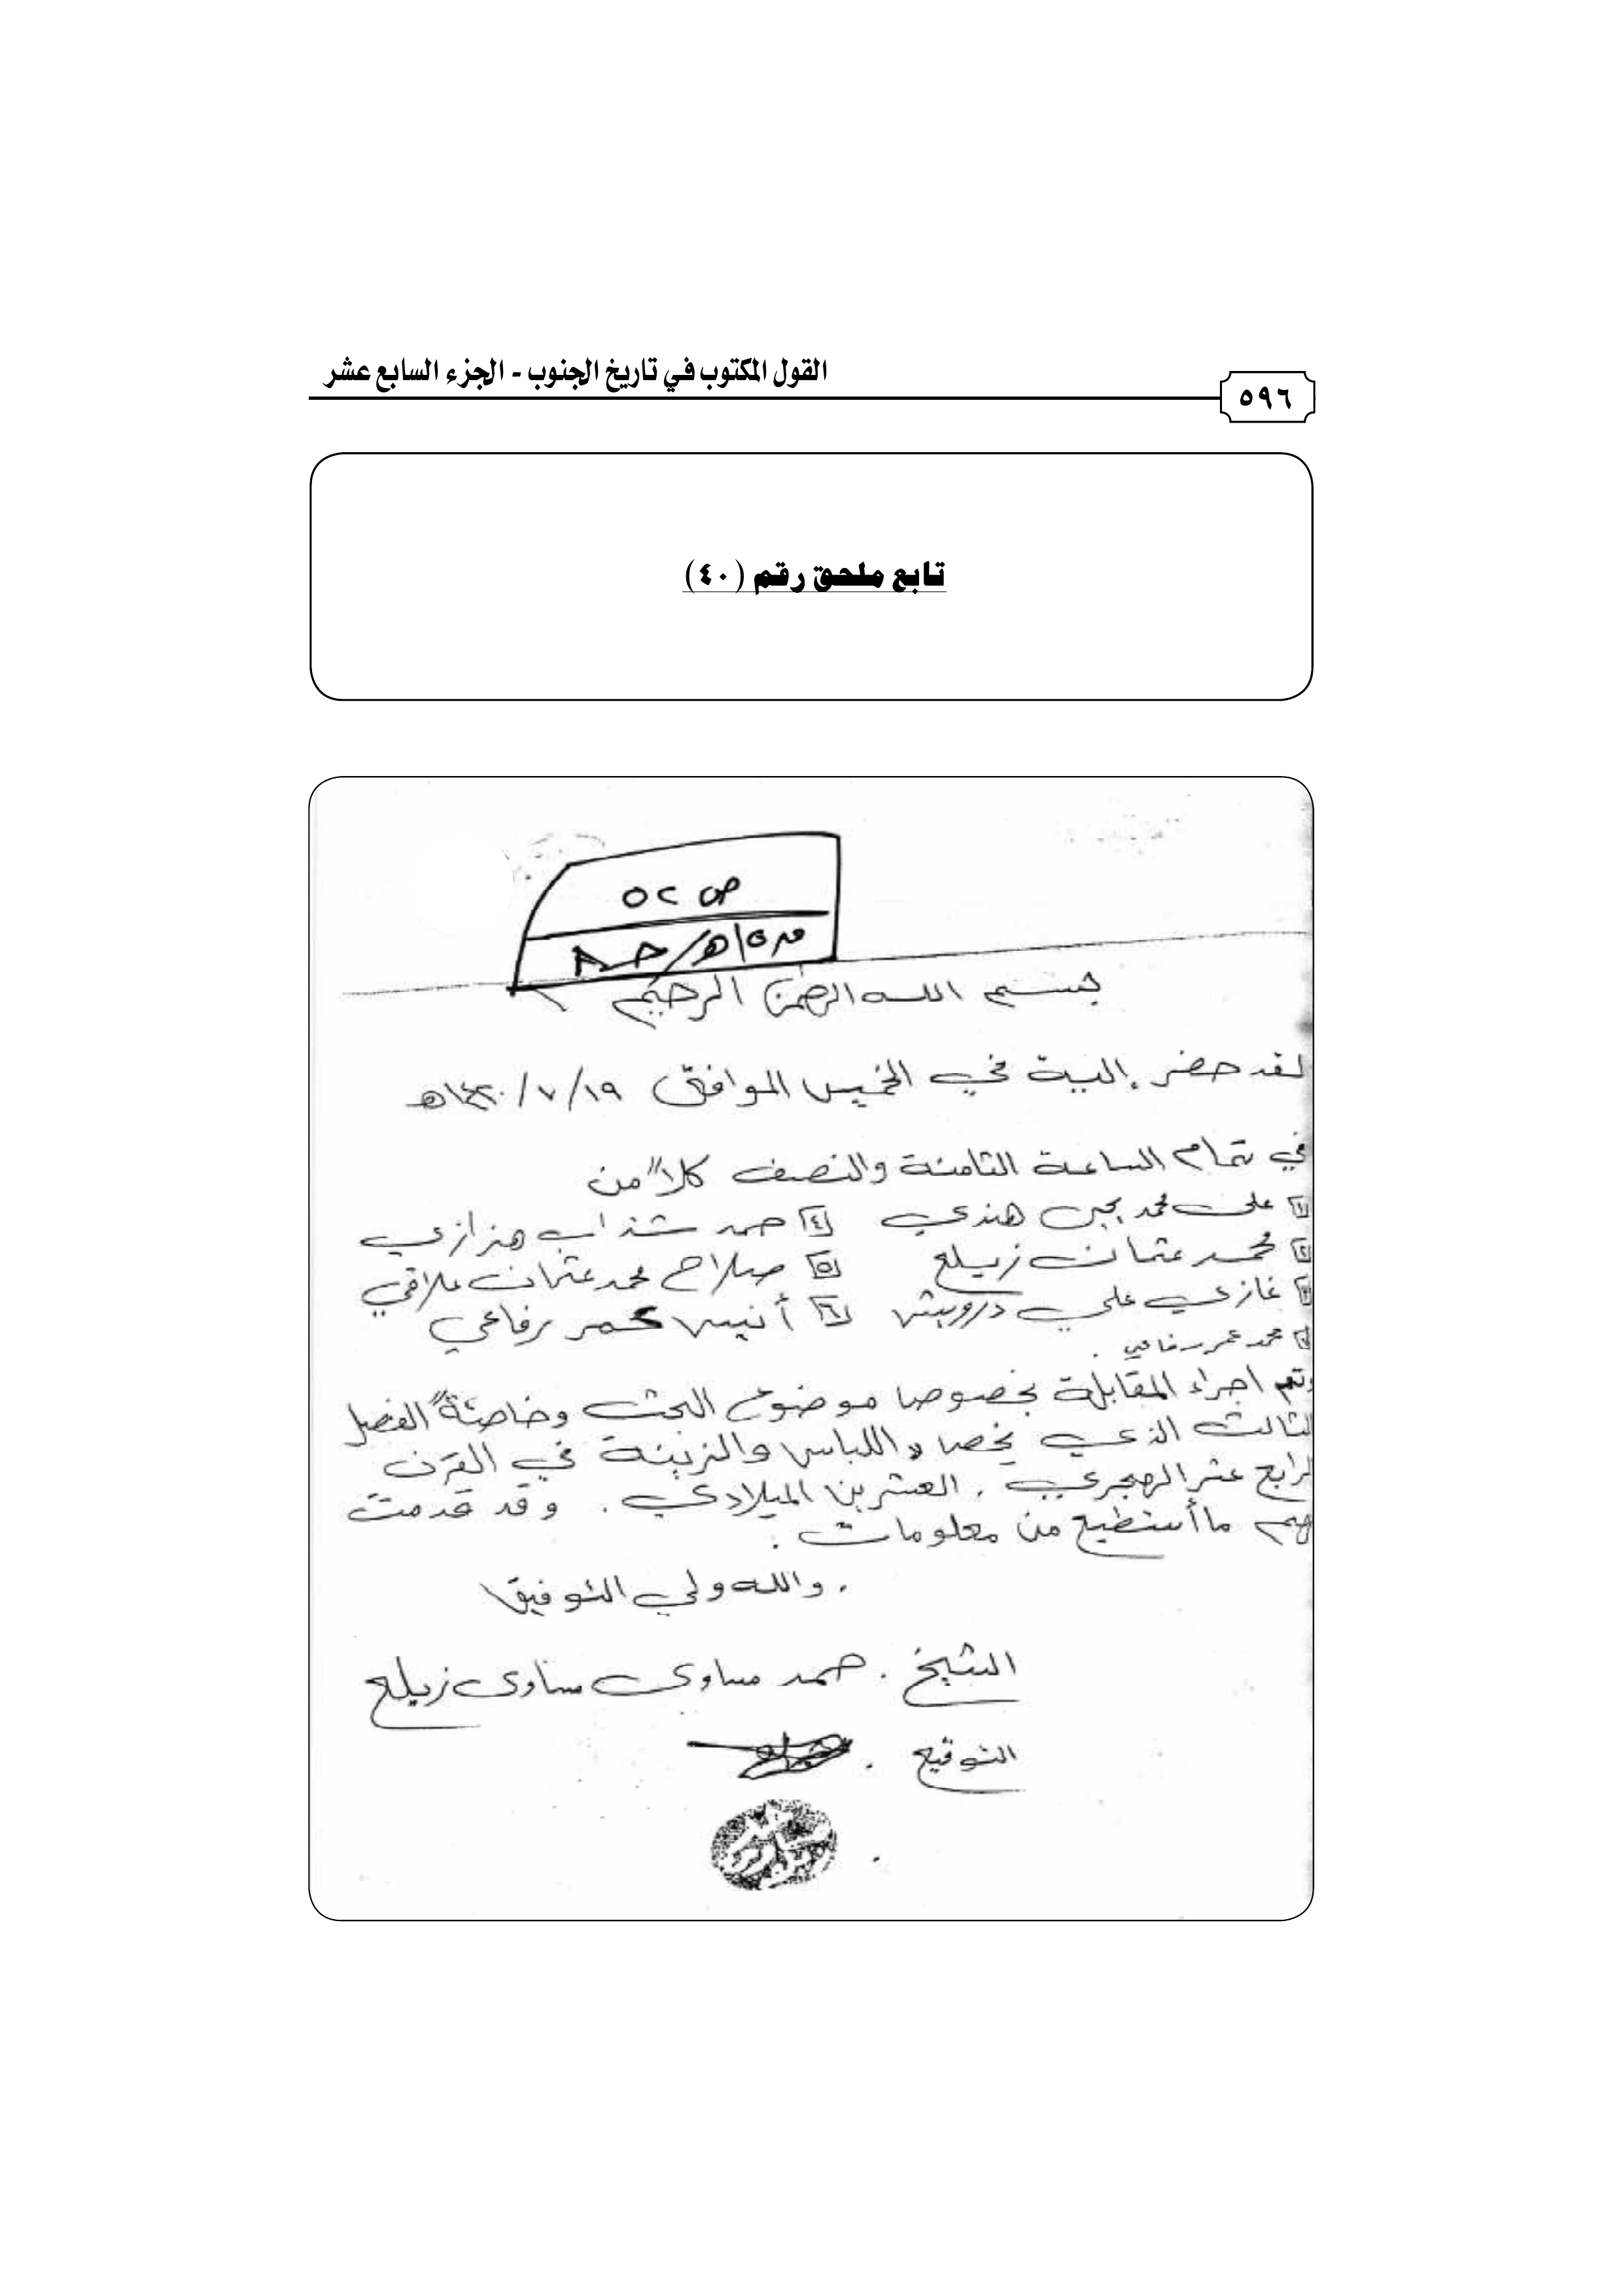 القول المكتوب في تاريخ الجنوب - الجزء السابع عشر
٥٩٦
تابع ملحق رقم (٤٠)
ص ٥٢
بسم الله الرحمن الرحيم
لقد حضر إلبية في الخميس الموافق ١٩/٧/١٤٣٠هـ
في تمام الساعة الثامنة والنصف كلاً من
١ علي محمد يحيى هندي ٤ حمد شذاب هزازي
٢ محمد عثمان زيلع ٥ صلاح محمد عثمان علاقي
٣ غازي علي درويش ٦ أنيس عمر رفاعي
٧ محمد عمر رفاعي .
وتم اجراء المقابلة بخصوصا موضوع البحث وخاصتةً الفصل
الثالث الذي يخصا اللباس والزينة في القرن
الرابع عشر الهجري . العشرين الميلادي . وقد قدمت
لهم ما أستطيع من معلومات .
. والله ولي التوفيق
الشيخ . حمد مساوى مساوى زيلع
التوقيع .